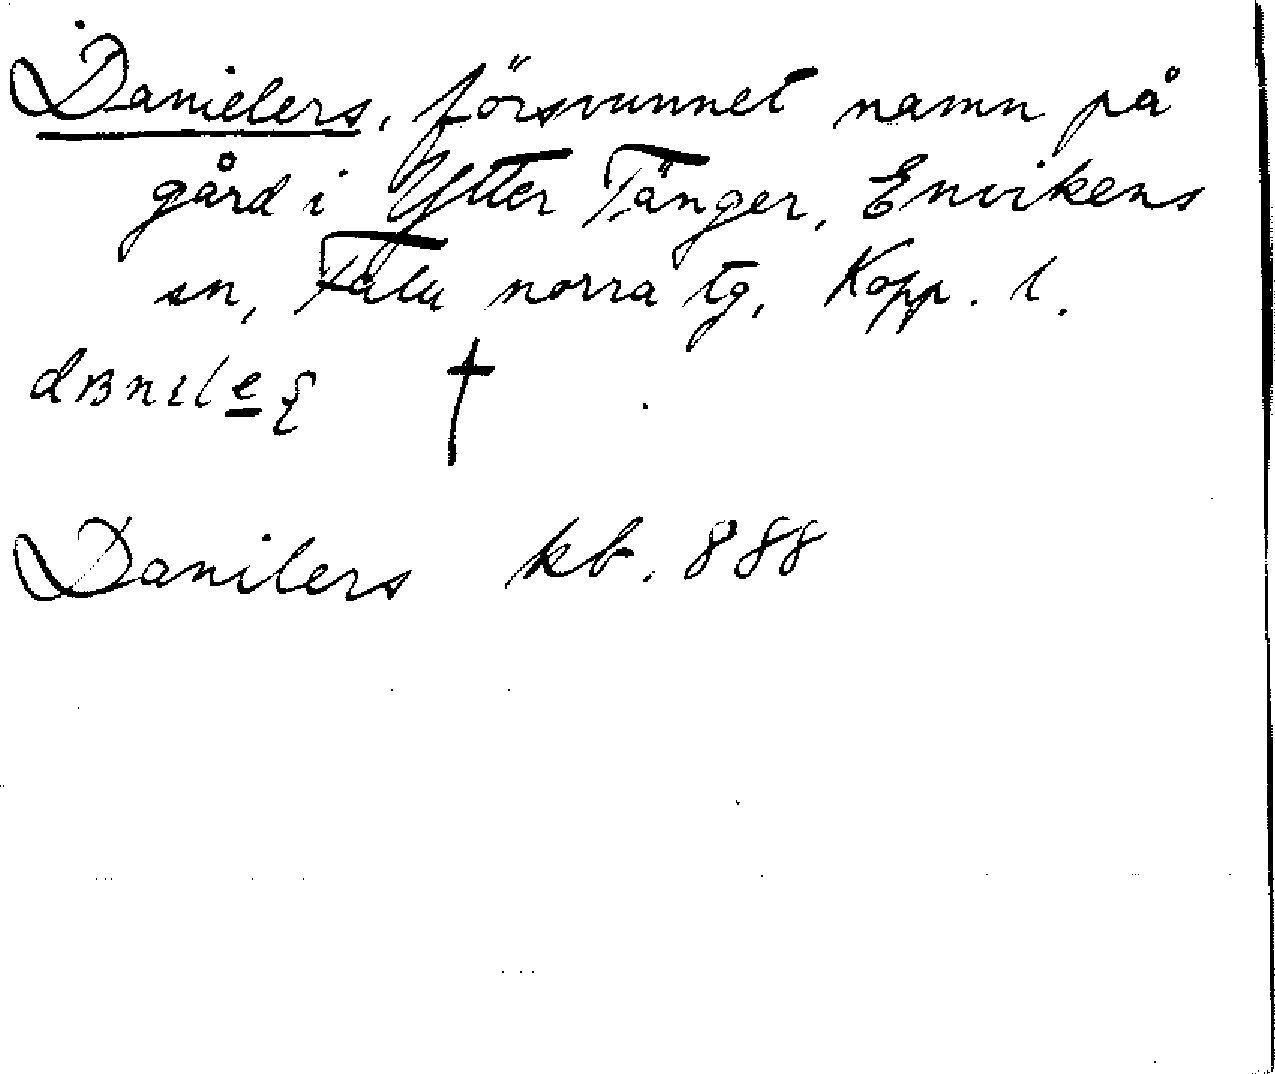 Danielers, försvunnet namn på
gård i Ytter Tänger, Envikens
sn, Falu norra tg, Kopp. l.
†
Danilers kb. 888